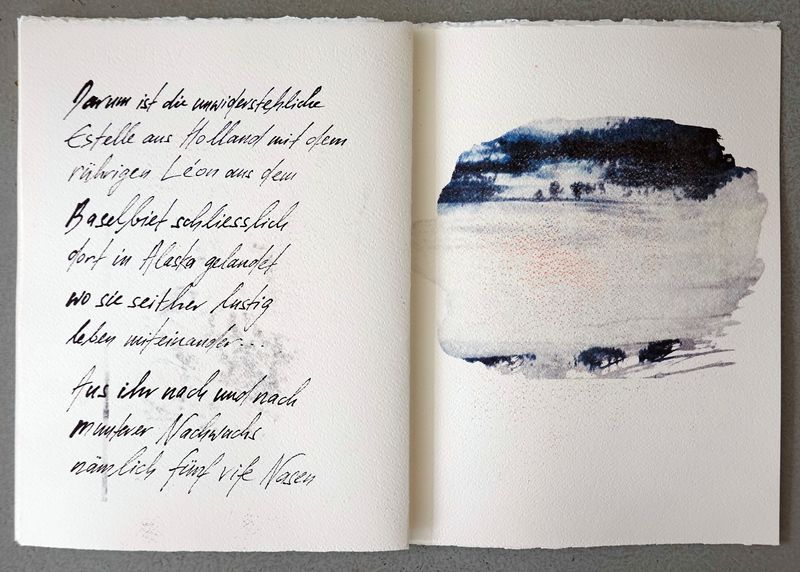 Darum ist die unwiderstehliche
Estelle aus Holland mit dem
rührigen Léon aus dem
Baselbiet schliesslich
dort in Alaska gelandet
wo sie seither lustig
leben miteinander...
Aus ihr nach und nach
munterer Nachwuchs
nämlich fünf vife Nasen